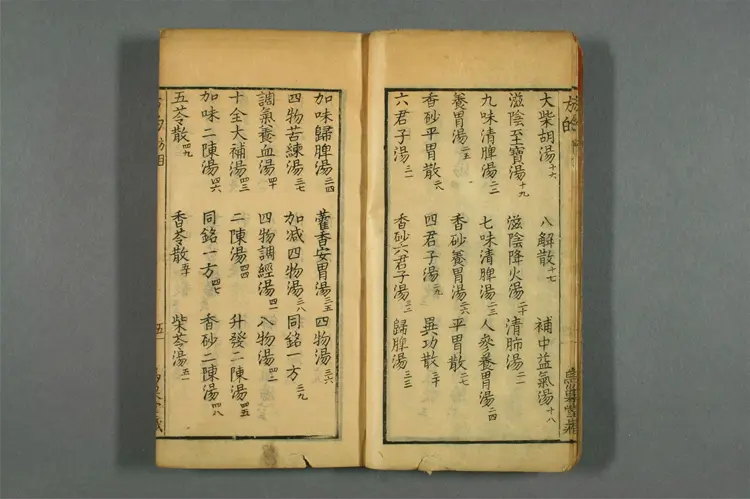 大柴胡湯十六 八解散十七 補中益氣湯十八
滋陰至寶湯十九 滋陰降火湯二十 清肺湯二一
九味清脾湯二二 七味清脾湯二三 人參養胃湯二四
養胃湯二五 香砂養胃湯二六 平胃散二七
香砂平胃散六 四君子湯二九 異功散三十
六君子湯三一 香砂六君子湯三二 歸脾湯三三
加味歸脾湯三四 藿香安胃湯三五 四物湯三六
四物苦練湯三七 加减四物湯三八 同銘一方三九
調氣養血湯四十 四物調經湯四一 八物湯四二
十全大補湯四三 二陳湯四四 升發二陳湯四五
加味二陳湯四六 同銘一方四七 香砂二陳湯四八
五苓散四九 香苓散五十 柴苓湯五一